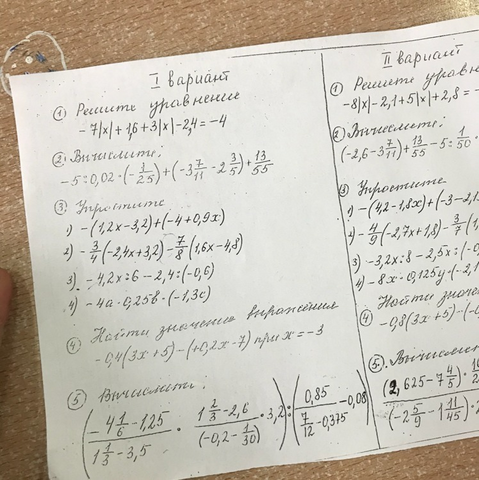 I вариант
① Решите уравнение
-7|x|+1,6+3|x|-2,4=-4
② Вычислите:
-5:0,02·(-3/25)+(-3 7/11-2 3/5)+13/55
③ Упростите
1) -(1,2x-3,2)+(-4+0,9x)
2) -3/4(-2,4x+3,2)-7/8(1,6x-4,8)
3) -4,2x:6-2,4:(-0,6)
4) -4a·0,25b·(-1,3c)
④ Найти значение выражения
-0,4(3x+5)-(+0,2x-7) при x=-3
⑤ Вычислить:
((-4 1/6-1,25)/(1 1/3-3,5)·(1 2/3-2,6)/(-0,2-1/30)·3,2):(0,85/(7/12-0,375)-0,08)
II вариант
① Решите
-8|x|-2,1+5|x|+2,8=
② Вычислите:
(-2,6-3 7/11)+13/55-5:1/50·
③ Упростите
1) -(4,2-1,8x)+(-3-2,1
2) -4/9(-2,7x+1,8)-3/7(1
3) -3,2x:8-2,5x:(-0
4) -8x·0,125y·(-2,1
④ Найти
-0,8(3x+5)-(-0
⑤.
(2,625-7 4/5)
(-2 5/9-1 11/45)·2